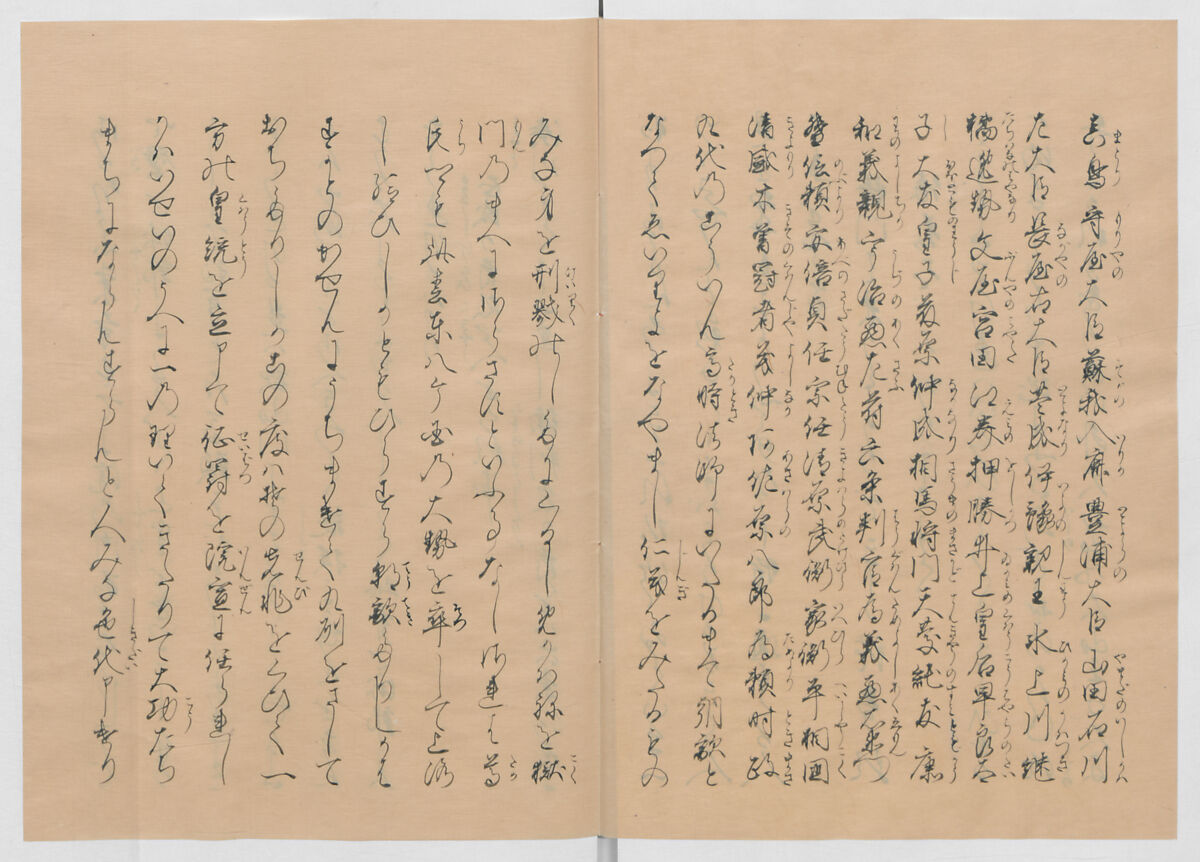 真鳥守屋大臣蘇我入鹿豊浦大臣山田石川
左大臣長屋右大臣豊成伊豫親王氷上川継
橘逸勢文屋宮田江美押勝井上皇后早良太
子大友皇子藤原仲成相馬将門天慶純友康
和義親宇治悪左府六条判官為義悪右衛門
督信頼安倍貞任宗任清原武衡家衡平相国
清盛木曽冠者義仲阿佐原八郎為頼時政
九代のこういん高時法師にいたるまで朝敵と
なつてゑいりよをなやまし仁義をみだるもの
みな身を刑戮のしもにくるしめかはねを獄
門のまへにさらさすといふ事なしされは尊
氏卿も此春東八ヶ国の大勢を率して上洛
し給ひしかともひたすら朝敵たりしかは
すかとのかせんにうちまけて九州をさして
おちたりしか此度は其の先非をくひて一
方の皇統を立申て征罸を院宣に任られし
かはいせいのうへに一の理いてきたりて大功たち
まちにならんすらんと人みな色代申けり